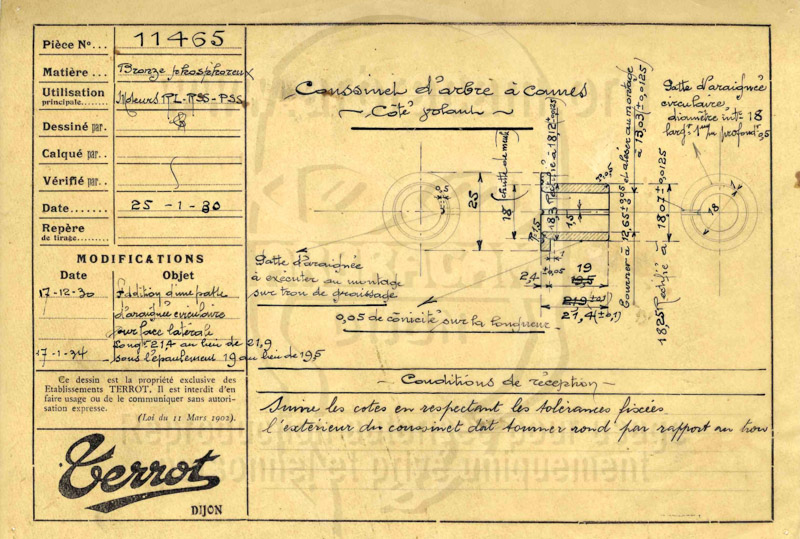 Pièce No... 11465
Matière... Bronze phosphoreux
Utilisation principale... Moteurs PL-RSS-PSS
Dessiné par.
Calqué par..
Vérifié par..
Date....... 25 -1-30
Repère de tirage.
MODIFICATIONS
Date Objet
17-12-30 Addition d'une patte
d'araignée circulaire
sur face latérale
17-1-34 Long^r 21,4 au lieu de 21,9
sous l'épaulement 19 au lieu de 19,5
Ce dessin est la propriété exclusive des
Etablissements TERROT. Il est interdit d'en
faire usage ou de le communiquer sans autori-
sation expresse.
(Loi du 11 Mars 1902).
Terrot
DIJON
Coussinet d'arbre à cames
- Côté volant -
Patte d'araignée
circulaire,
diamètre int^r 18
larg^r 1 m/m profond^r 0,5
0,5
25
18
18,3 Rectifié à 1812
1,5
2,4
19
19,5
21,9 (±0,1)
21,4 (±0,1)
Tourner à 12,65 ±0,05 et aléser au montage
à 13,03 (±0,0125)
18,25 Rectifié à 18,07 ±0,0125
18
Patte d'araignée
à exécuter au montage
sur trou de graissage
0,05 de conicité sur la longueur -
- Conditions de réception -
Suivre les cotes en respectant les tolérances fixées
l'extérieur du coussinet doit tourner rond par rapport au trou